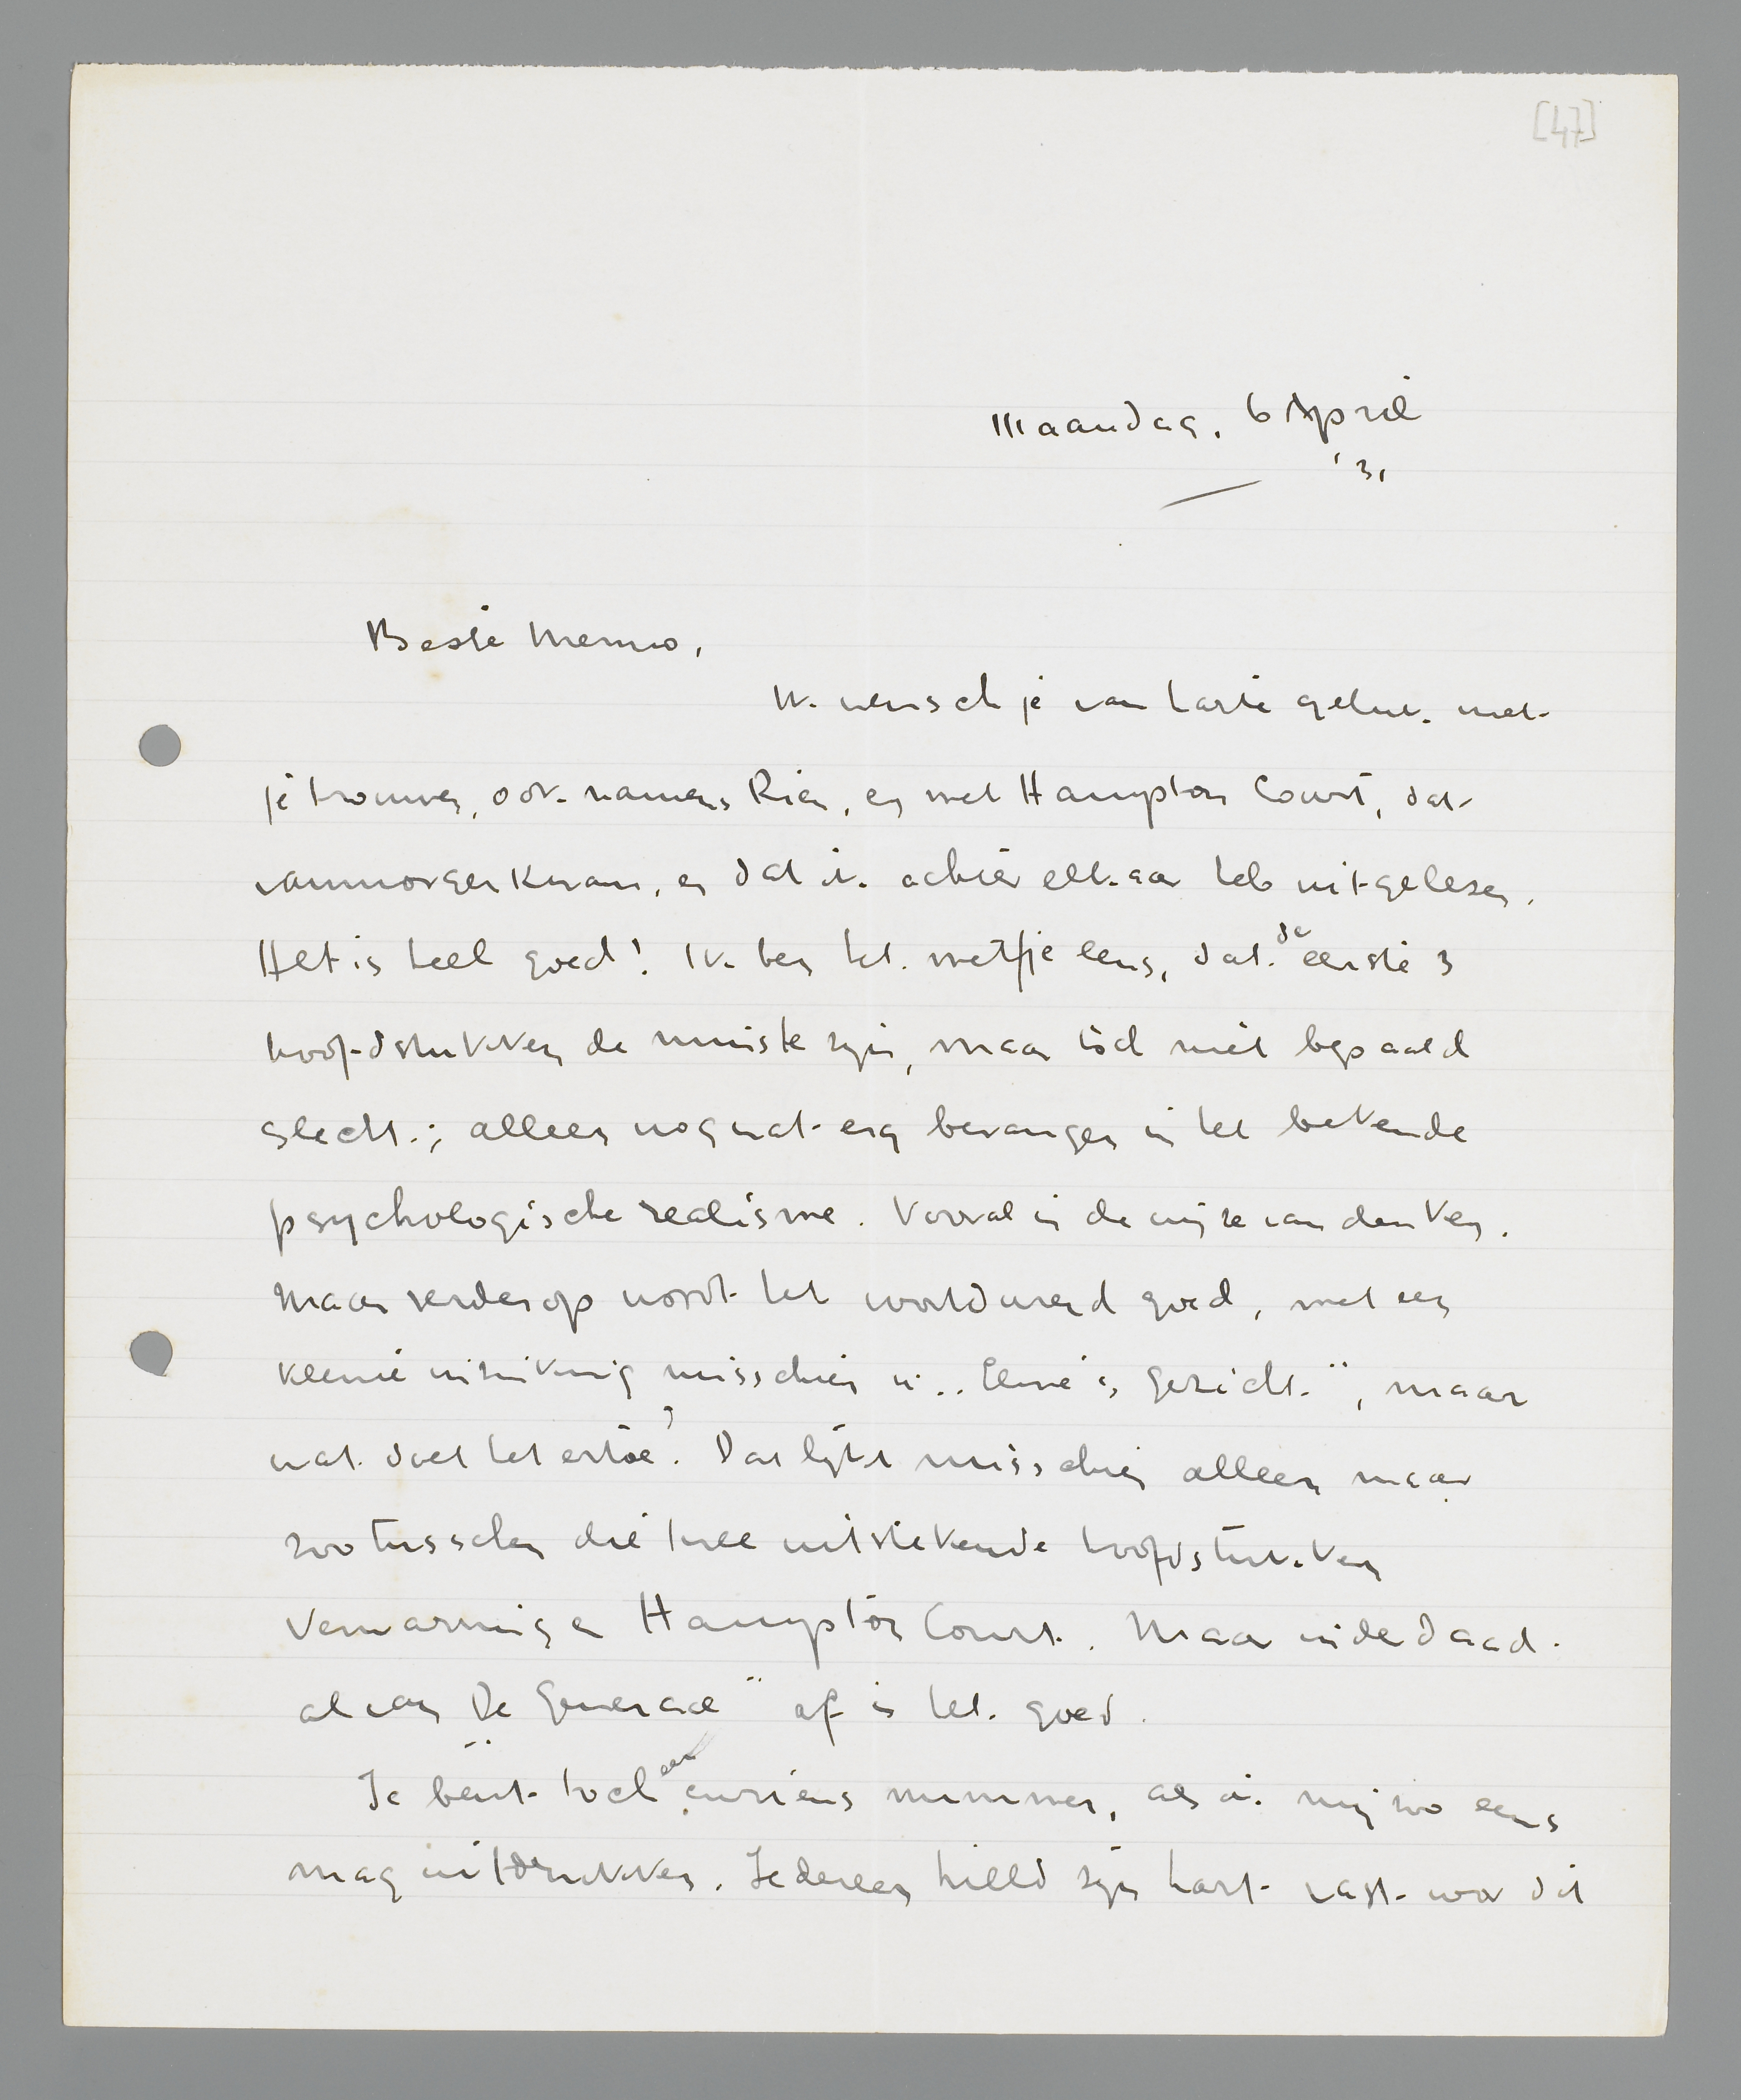 [47]
Maandag, 6 April
'31
Beste Menno,
Ik wensch je van harte geluk met
je trouwen, ook namens Rien, en met Hampton Court, dat
vanmorgen kwam, en dat ik achter elkaar heb uitgelezen.
Het is heel goed! Ik ben het met je eens, dat de eerste 3
hoofdstukken de minste zijn, maar toch niet bepaald
slecht; alleen nog wat erg bevangen in het bekende
psychologische realisme. Vooral in de wijze van denken.
Maar verderop wordt het voortdurend goed, met een
kleine inzinking misschien in „Eline's gezicht", maar
wat doet het ertoe? Dat lijkt misschien alleen maar
zoo tusschen die twee uitstekende hoofdstukken
Verwarring en Hampton Court. Maar inderdaad
al van „De Generaal" af is het goed.
Je bent toch een curieus nummer, als ik mij zoo eens
mag uitdrukken. Iedereen hield zijn hart vast voor dit